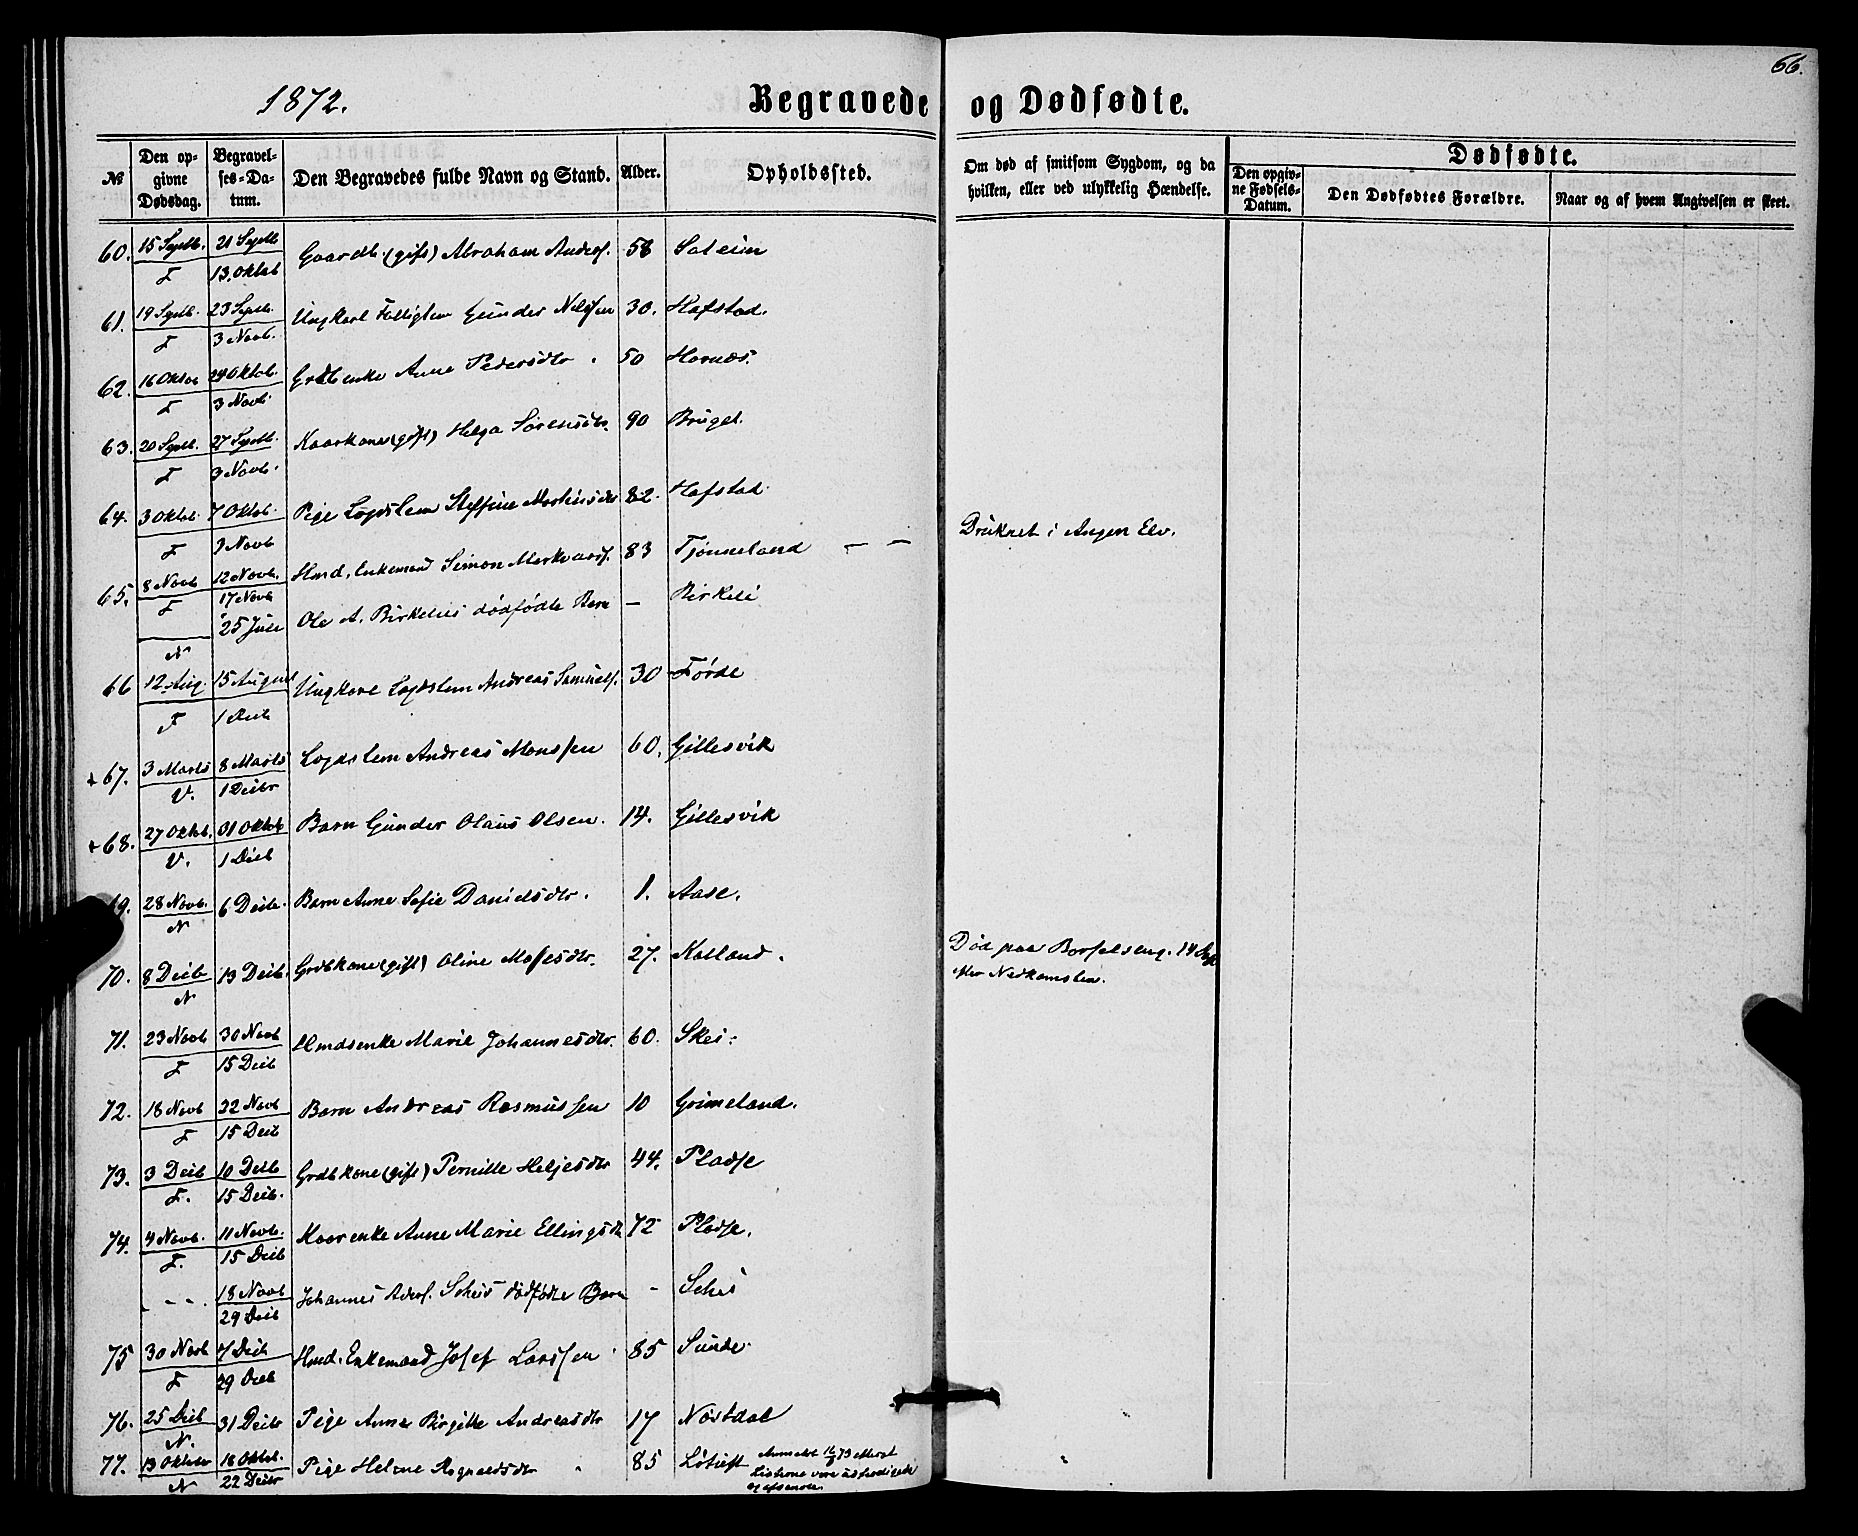 66.
1872.
Begravede og Dødfødte.
№
Den opgivne Dødsdag.
Begravelses-Datum.
Den Begravedes fulde Navn og Stand.
Alder.
Opholdssted.
Om død af smitsom Sygdom, og da hvilken, eller ved ulykkelig Hændelse.
Dødfødte.
Den opgivne Fødsels-Datum.
Den Dødfødtes Forældre.
Naar og af hvem Angivelsen er skeet.
60. 15 Septb. 21 Septb Gaardb. (gift) Abraham Anders. 58 Saleim
F 13. Oktob
61. 19 Septb. 23 Septb. Ungkarl Gunder Nilssen 30. Hafstad.
F 3 Novb.
62. 16 Oktob 24 Oktob. Grdbenke Anne Pedersdtr. 50 Hornæs.
F 3 Novb.
63. 20 Septb. 27 Septb. Kaarkone (gift) Helga Sørensdtr. 90 Bruget.
F 3 Novb.
64. 3 Oktob. 7 Oktob. Pige Lægdslem Steffine Mortensdtr 82. Hafstad.
F 3 Novb
65. 8 Novb 12 Novb. Hmd. Enkemand Simon Markuss. 83 Tjønneland — — Druknet i Angen Elv.
F 17 Novb
25 Juli Ole A. Birkelies dødfødte Barn — Birkeli
N
66 12 Aug. 15 August Ungkarl Lægdslem Andreas Samuels. 30 Førde
F 1 Decb
+ 67. 3 Marts 8 Marts Lægdslem Andreas Monssen 60. Gillesvik
V. 1 Decbr
+ 68. 27 Oktob. 01 Oktob Barn Gunder Olaus Olsen. 14. Gillesvik
V. 1 Decb
69. 28 Novb. 6 Decb. Barn Anne Sofie Danielsdtr. 1. Aase.
N
70. 8 Decb 13 Decb. Grdbkone (gift) Oline Mosesdtr. 27. Kalland. Død paa Barselseng. 14
N efter Nedkomsten.
71. 23 Novb 30 Novb Hmdsenke Marie Johannesdtr. 60. Skei.
F 15 Decb
72. 18 Novb 22 Novb Barn Andreas Rasmussen 10 Grimeland.
F 15 Decb
73. 3 Decb 10 Decb Grdbkone (gift) Pernille Heljesdtr 44. Pladse
F. 15 Decb.
74. 4 Novb. 11 Novb. Kaarenke Anne Marie Ellingsdtr 72 Pladse.
F. 15 Decb
- - - 18 Novb Johannes Aders. Scheis dødfødte Barn - Schei
29 Decb
75 30 Novb 7 Decb Hmd. Enkemand Josef Larssen 85 Sunde.
F 29 Decb
76. 25 Decb 31 Decbr Pige Anne Birgitte Andreasdtr 17 Nøstdal
N.
77. 13 Oktober 18 Oktob. Pige Helene Rognaldsdtr 85
N 22 Decbr Listerne vare udfærdigede
og afsendte.